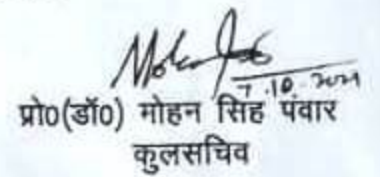 7.10.2021
प्रो0(डॉ0) मोहन सिंह पंवार
कुलसचिव